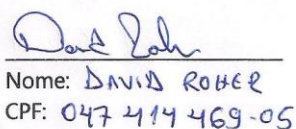 Nome: DAVID ROHER
CPF: 047 414 469-05